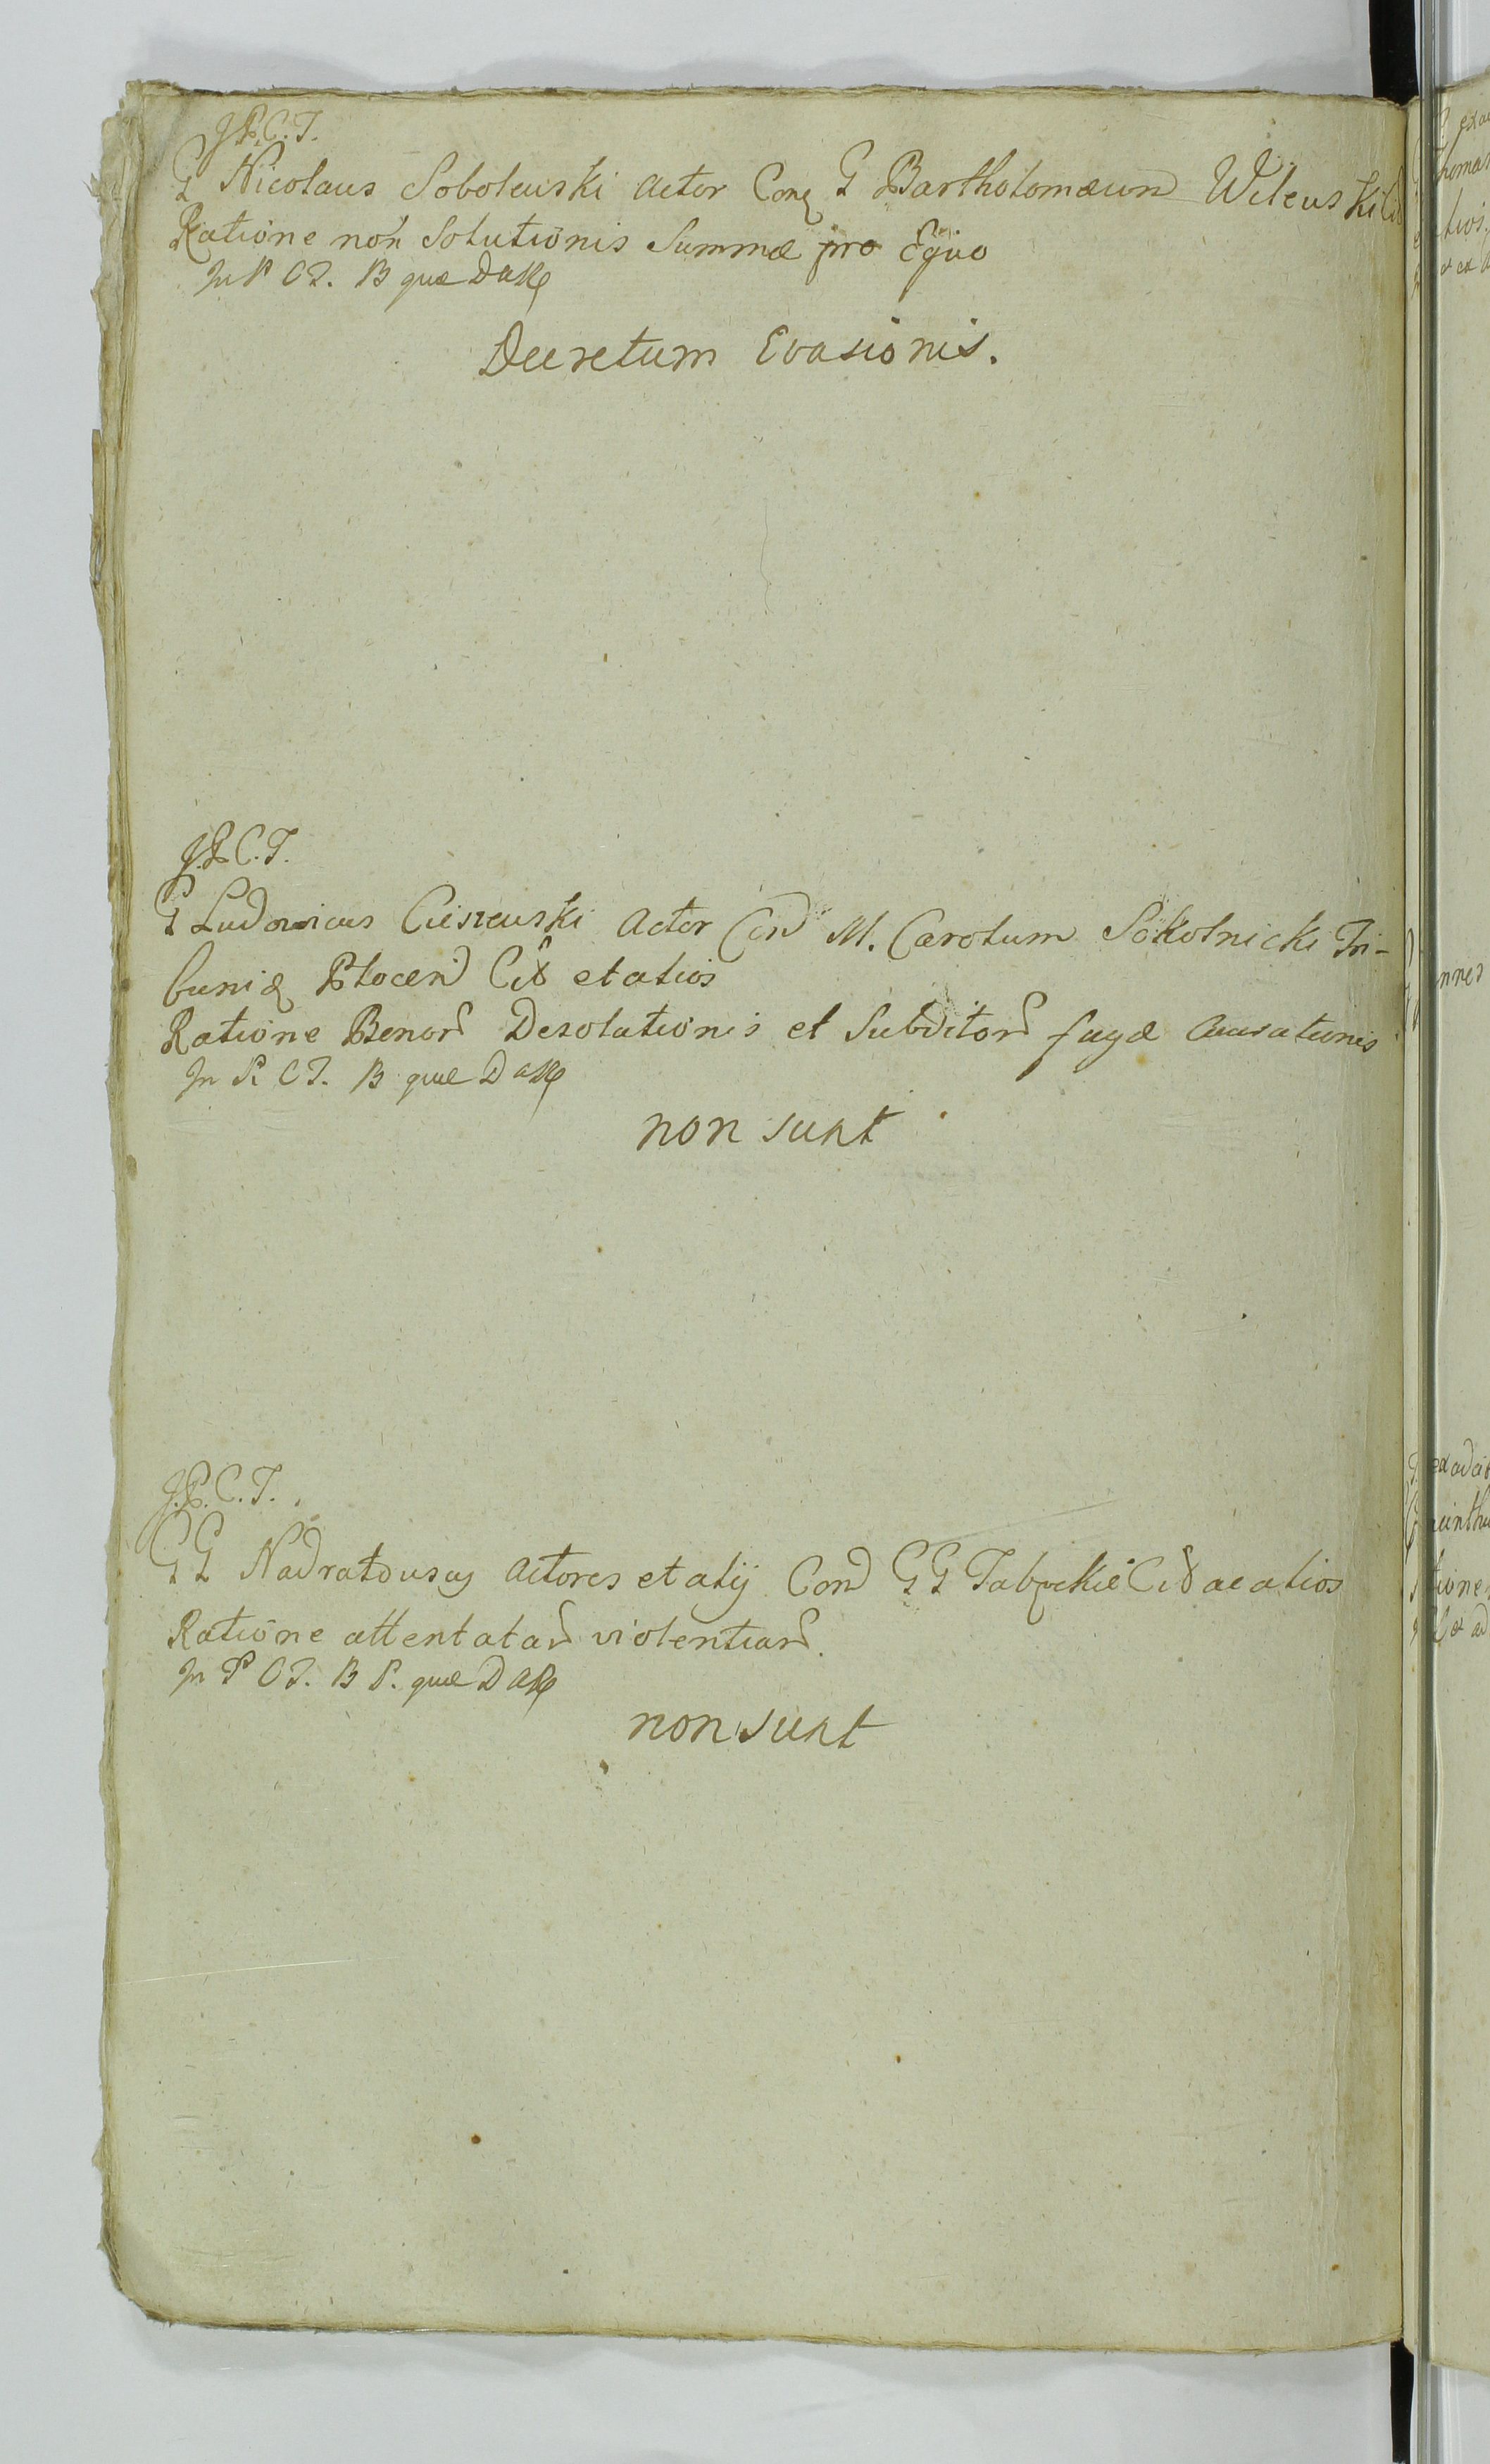 J.P.C.T.
G Nicolaus Sobolewski Actor Con G Bartholomæum Wilewski
Ratione non Solutionis Summæ pro Equo
In P C T. B quæ D
Decretum Evasionis.
J.P.C.T.
G Ludovicus Cieszewski Actor Con M. Carolum Sokolnicki Tri-
bunid Plocen Cit et alios
Ratione Bonor Desolationis et Subditor fugæ Causationis
In P. C T. B quæ D
non sunt
J.P.C.T.
G G Nadratowscy Actores et alij Con G G Cit ac alios
Ratione attentatar violentiar.
In P C T. B P. quæ D
non sunt